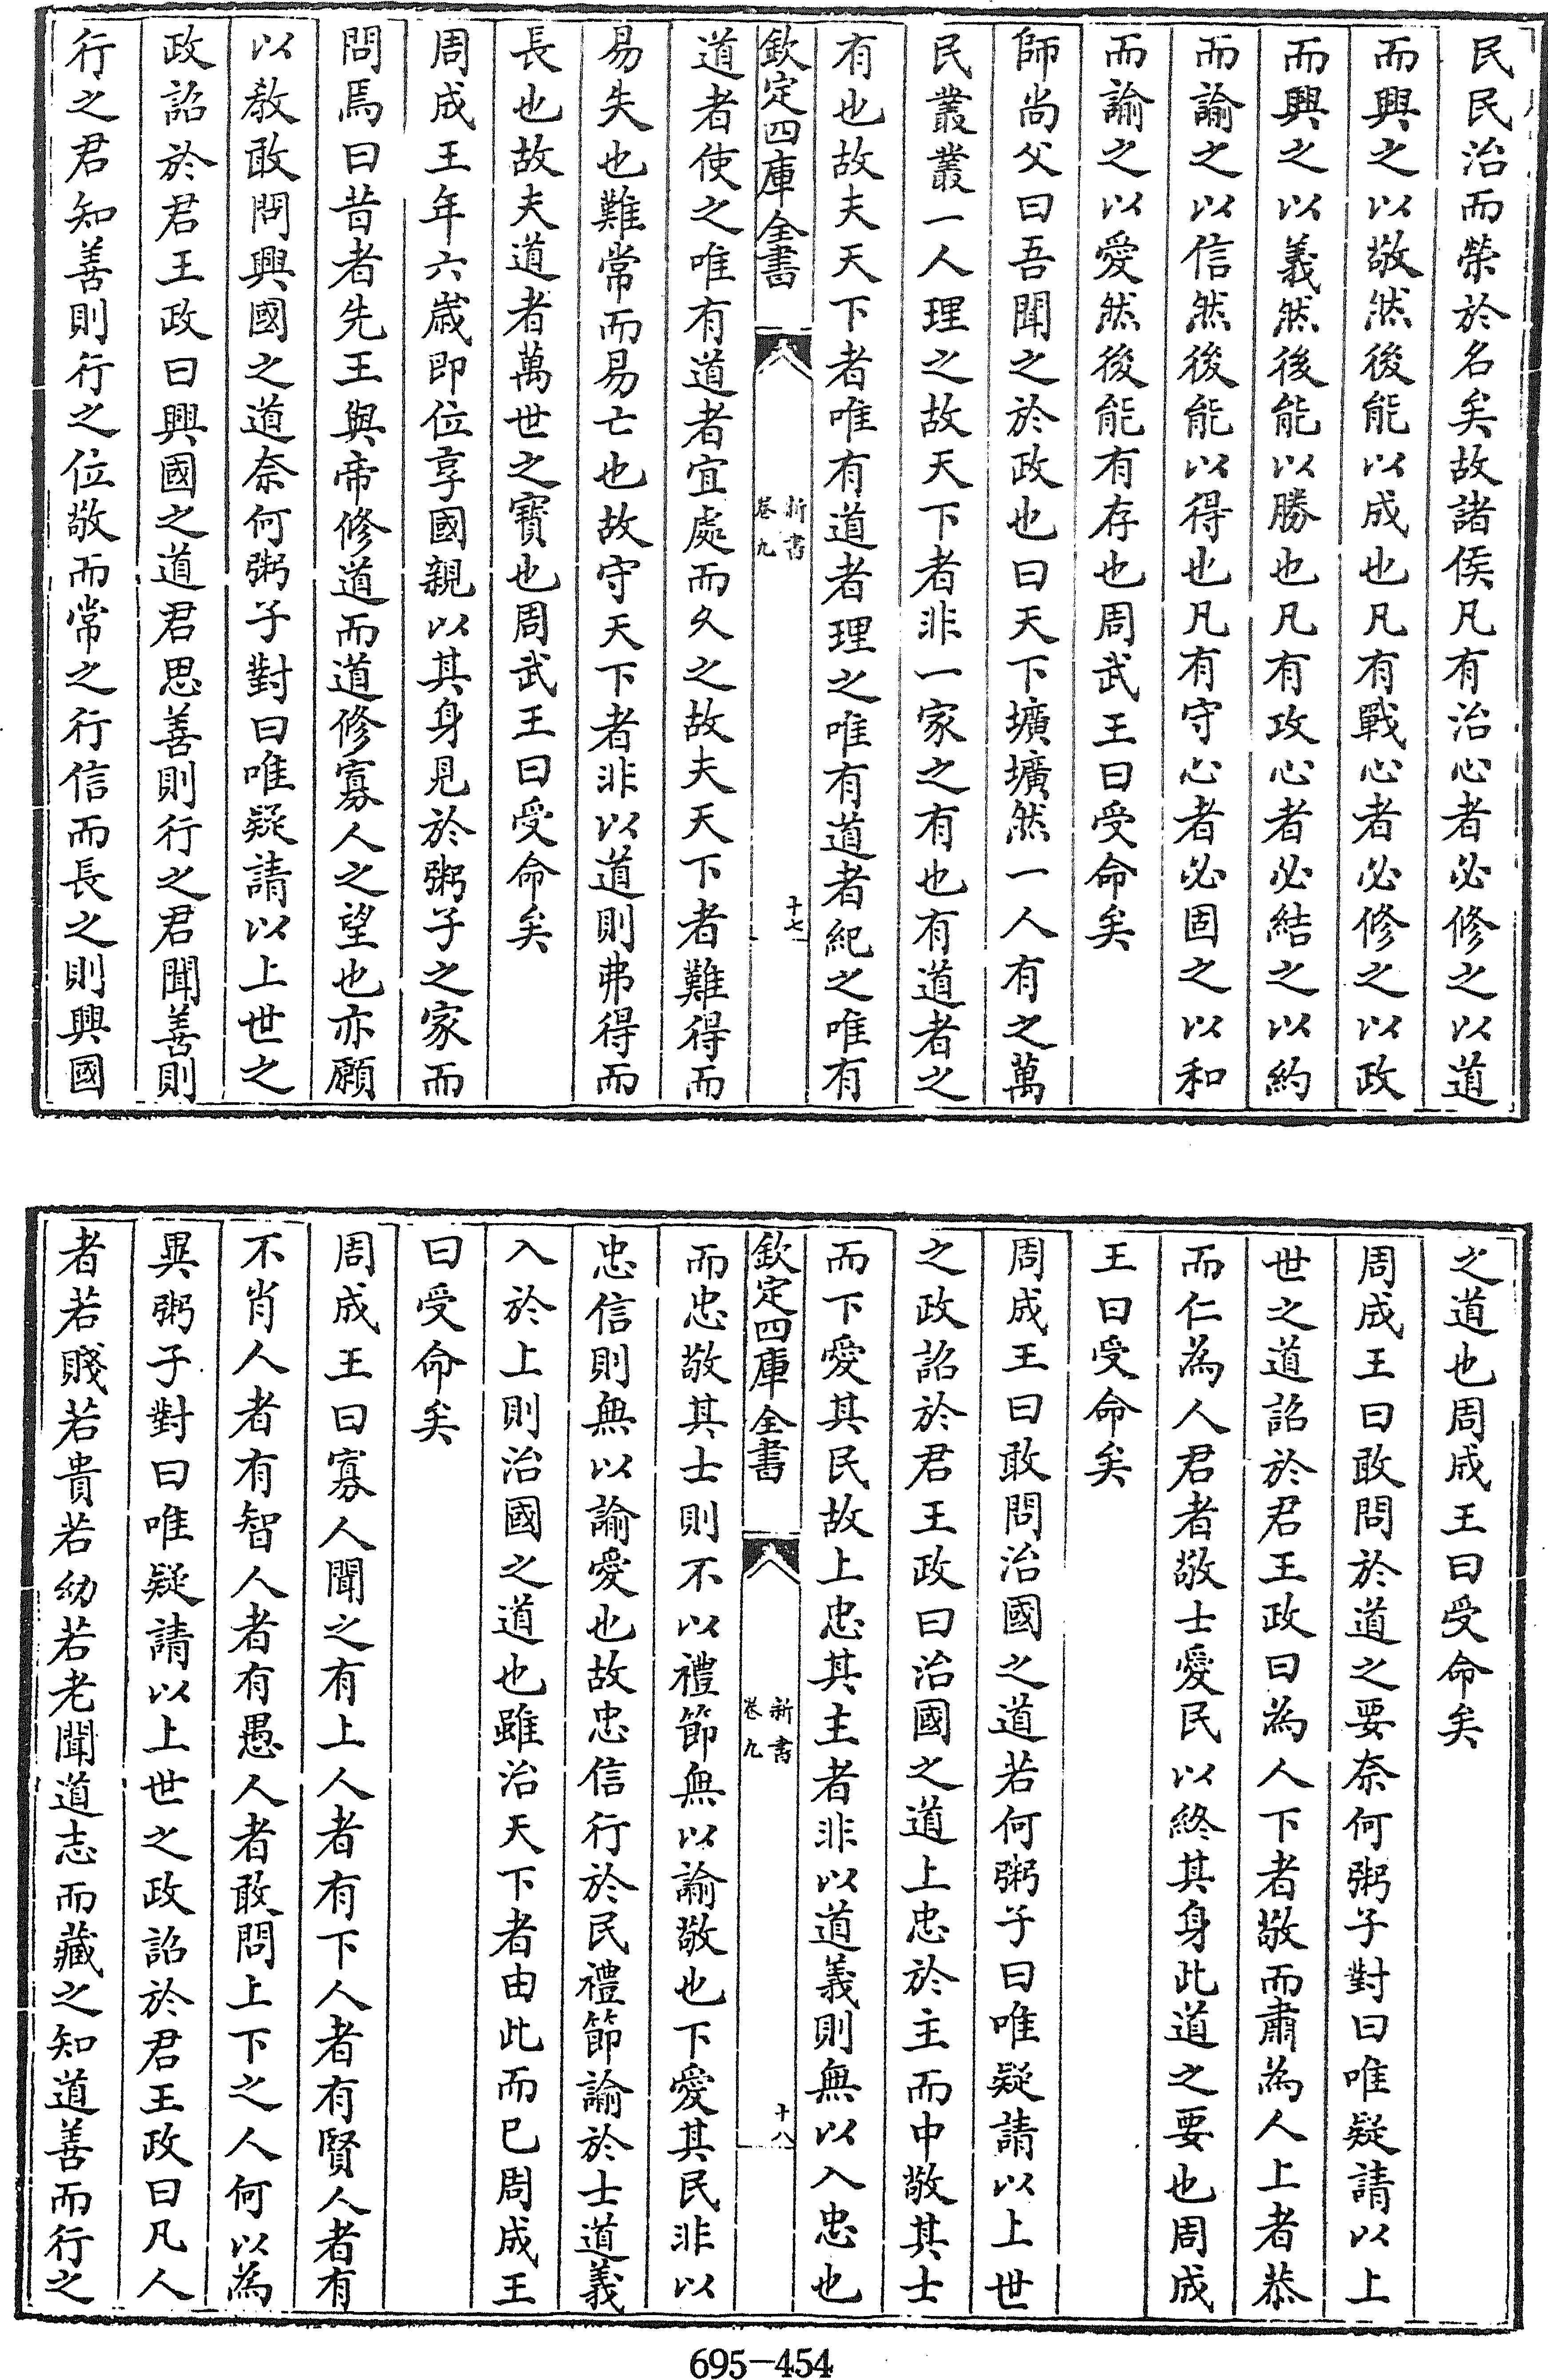 民民治而榮於名矣故諸侯凡有治心者必修之以道
而興之以敬然後能以成也凡有戰心者必修之以政
而興之以義然後能以勝也凡有攻心者必結之以約
而諭之以信然後能以得也凡有守心者必固之以和
而諭之以愛然後能有存也周武王曰受命矣
師尚父曰吾聞之於政也曰天下壙壙然一人有之萬
民叢叢一人理之故天下者非一家之有也有道者之
有也故夫天下者唯有道者理之唯有道者紀之唯有
欽定四庫全書
新書
卷九
十七
道者使之唯有道者宜處而久之故夫天下者難得而
易失也難常而易亡也故守天下者非以道則弗得而
長也故夫道者萬世之寶也周武王曰受命矣
周成王年六歲即位享國親以其身見於粥子之家而
問焉曰昔者先王與帝修道而道修寡人之望也亦願
以教敢問興國之道奈何粥子對曰唯疑請以上世之
政詔於君王政曰興國之道君思善則行之君聞善則
行之君知善則行之位敬而常之行信而長之則興國
之道也周成王曰受命矣
周成王曰敢問於道之要奈何粥子對曰唯疑請以上
世之道詔於君王政曰為人下者敬而肅為人上者恭
而仁為人君者敬士愛民以終其身此道之要也周成
王曰受命矣
周成王曰敢問治國之道若何粥子曰唯疑請以上世
之政詔於君王政曰治國之道上忠於主而中敬其士
而下愛其民故上忠其主者非以道義則無以入忠也
欽定四庫全書
新書
卷九
十八
而忠敬其士則不以禮節無以諭敬也下愛其民非以
忠信則無以諭愛也故忠信行於民禮節諭於士道義
入於上則治國之道也雖治天下者由此而已周成王
曰受命矣
周成王曰寡人聞之有上人者有下人者有賢人者有
不肖人者有智人者有愚人者敢問上下之人何以為
異粥子對曰唯疑請以上世之政詔於君王政曰凡人
者若賤若貴若幼若老聞道志而藏之知道善而行之
695-454